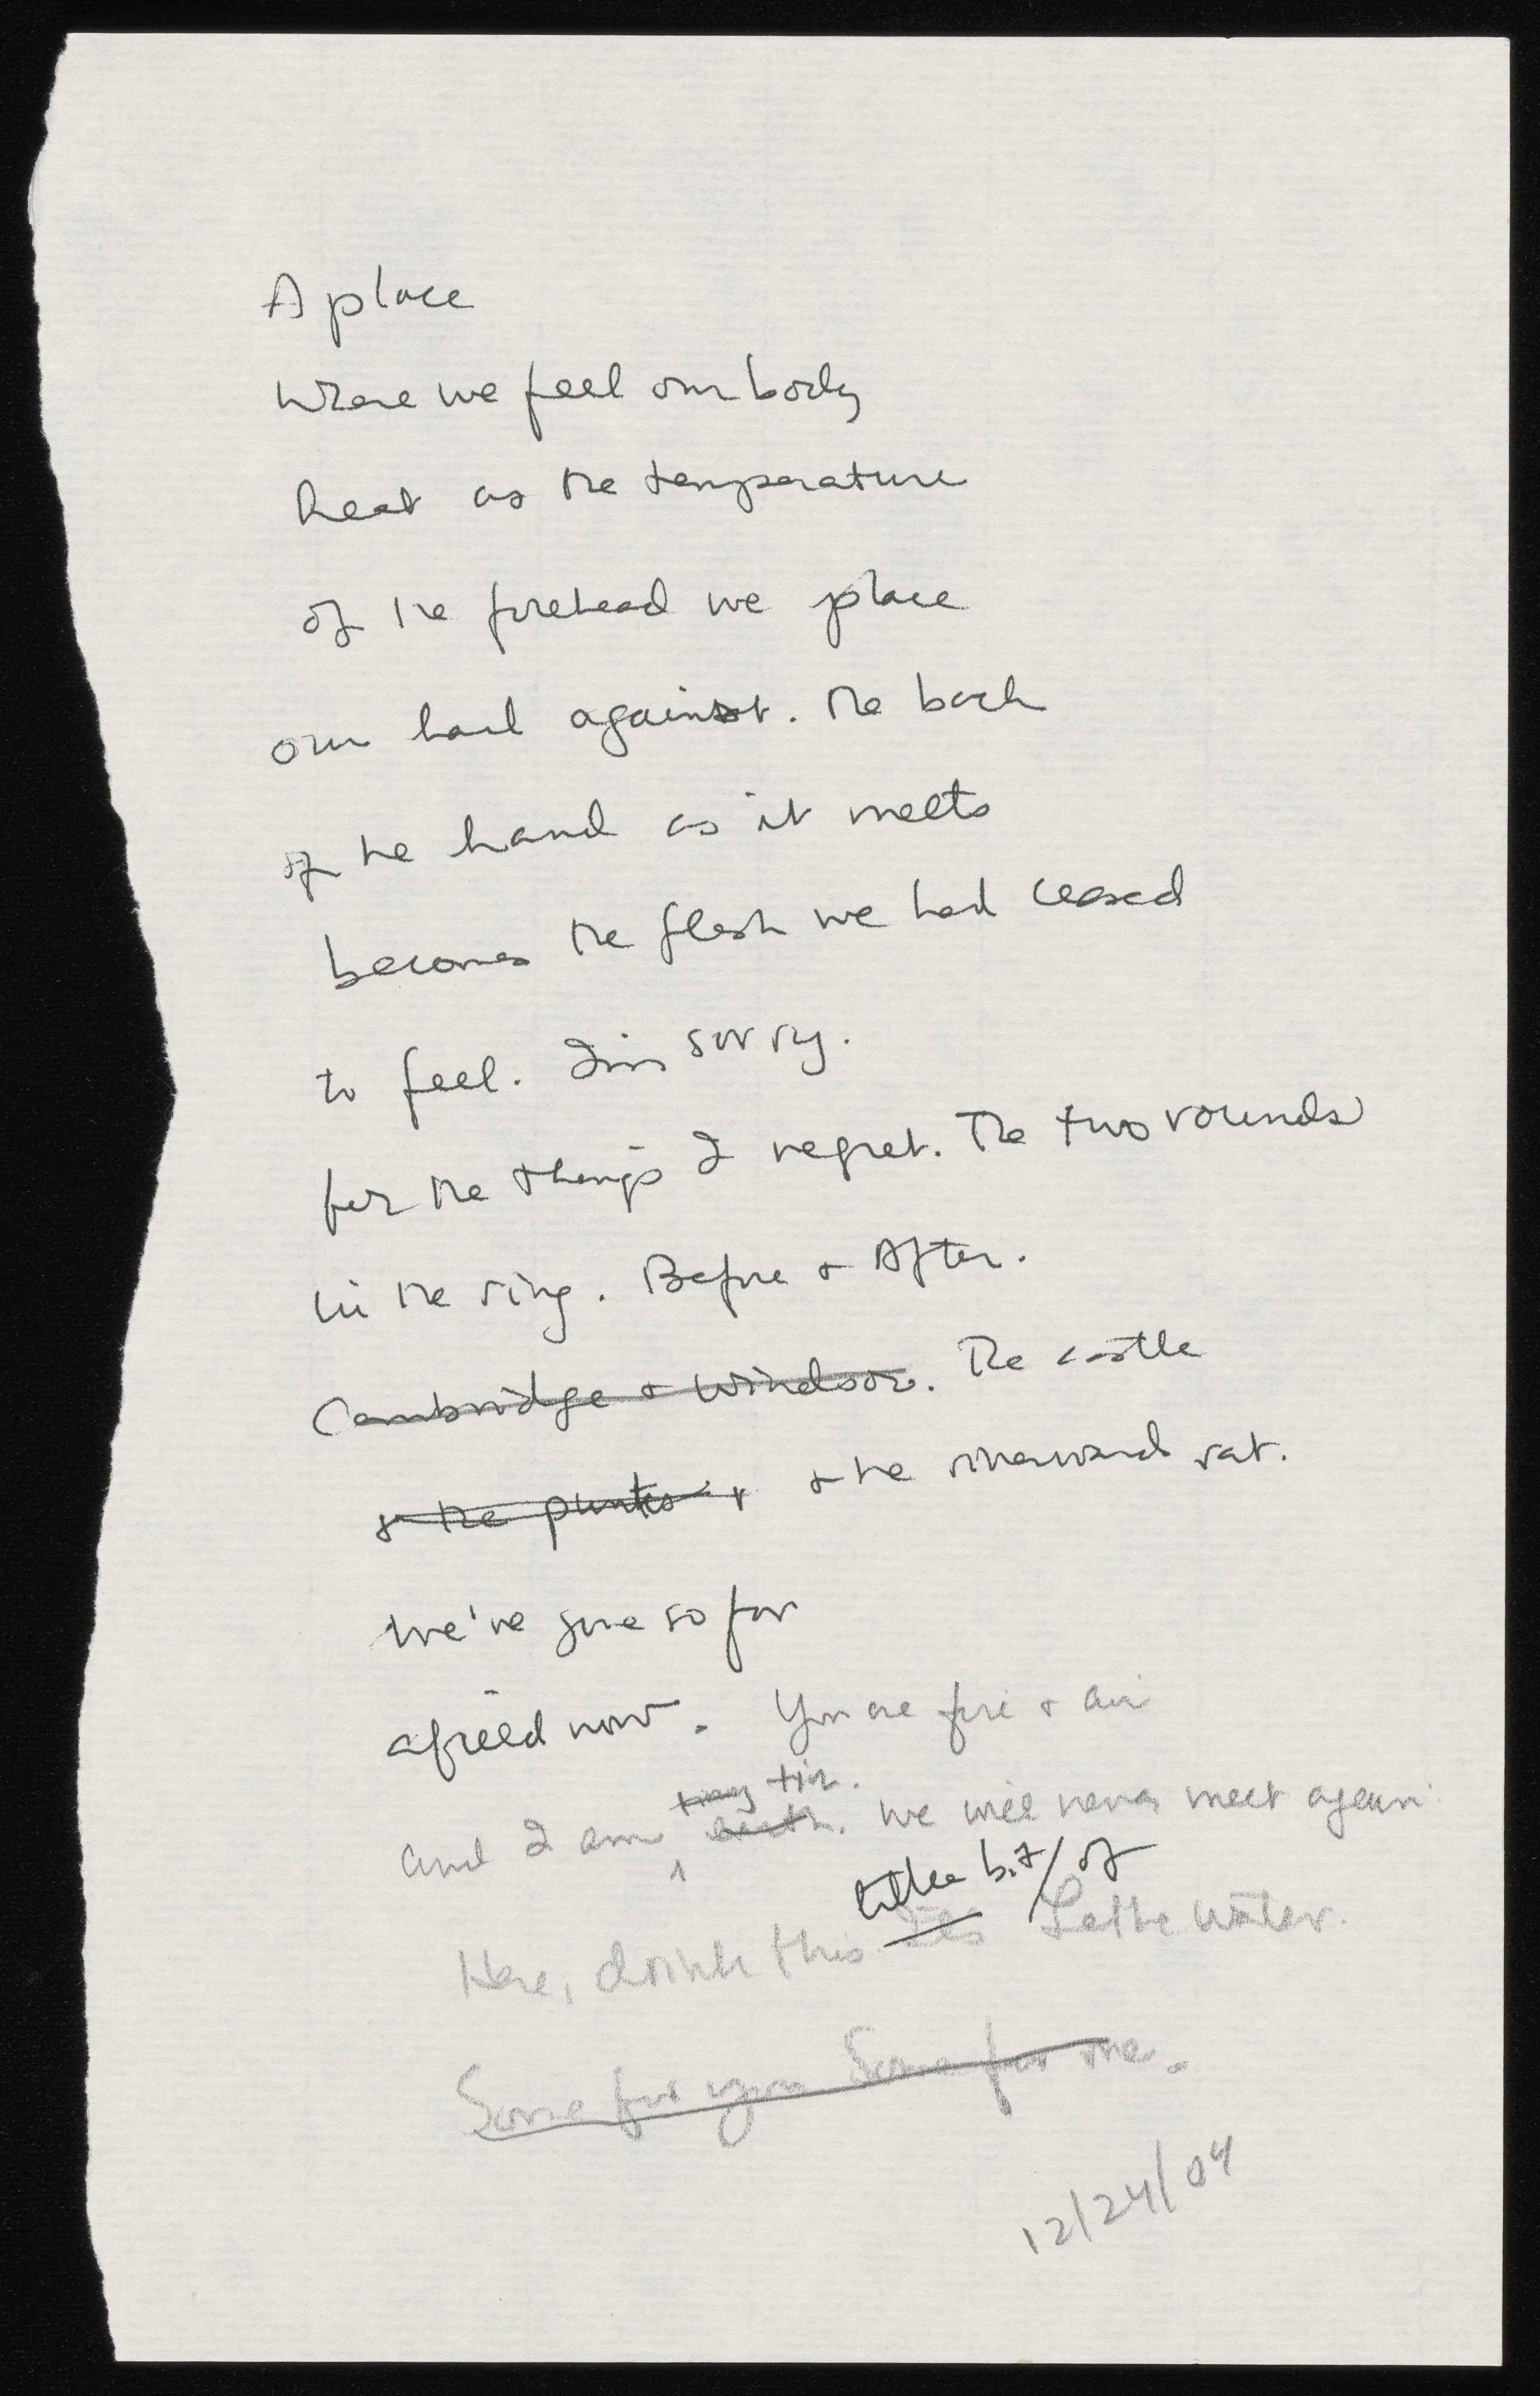 A place
Where we feel our body
heat as the temperature
of the forehead we place
our hand against. The back
of the hand as it meets
becomes the flesh we had ceased
to feel. I'm sorry.
for the things I regret. The two rounds
in the ring. Before & After.
Cambridge & Windsor. The castle
& the punts & & the riverward rat.
We've gone so far
afield now. You are fire & air
tiny tin.
and I am earth. We will never meet again.
little bit / of
Here, drink this Lethe water.
Some for you Some for me.
12/24/04